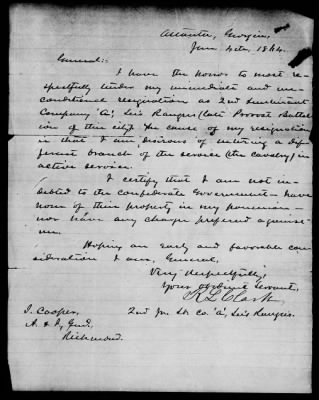 Atlanta, Georgia,
June 4th, 1864.
General:
I have the honor to most re-
spectfully tender my immediate and un-
conditional resignation as 2nd Lieutenant
Company "A", Lee's Rangers (late Provost Battal-
ion of this city). The cause of my resignation
is that I am desirous of entering a dif-
ferent branch of the service (the cavalry) in
active service.
I certify that I am not in-
debted to the Confederate Government - have
none of their property in my possession -
nor have any charges prefered against
me.
Hoping an early and favorable con-
sideration I am, General,
Very Respectfully,
Your obedient Servant,
R L Clark
2nd Lt. Co. "A", Lee's Rangers.
S. Cooper,
A. & I. Genl.
Richmond.